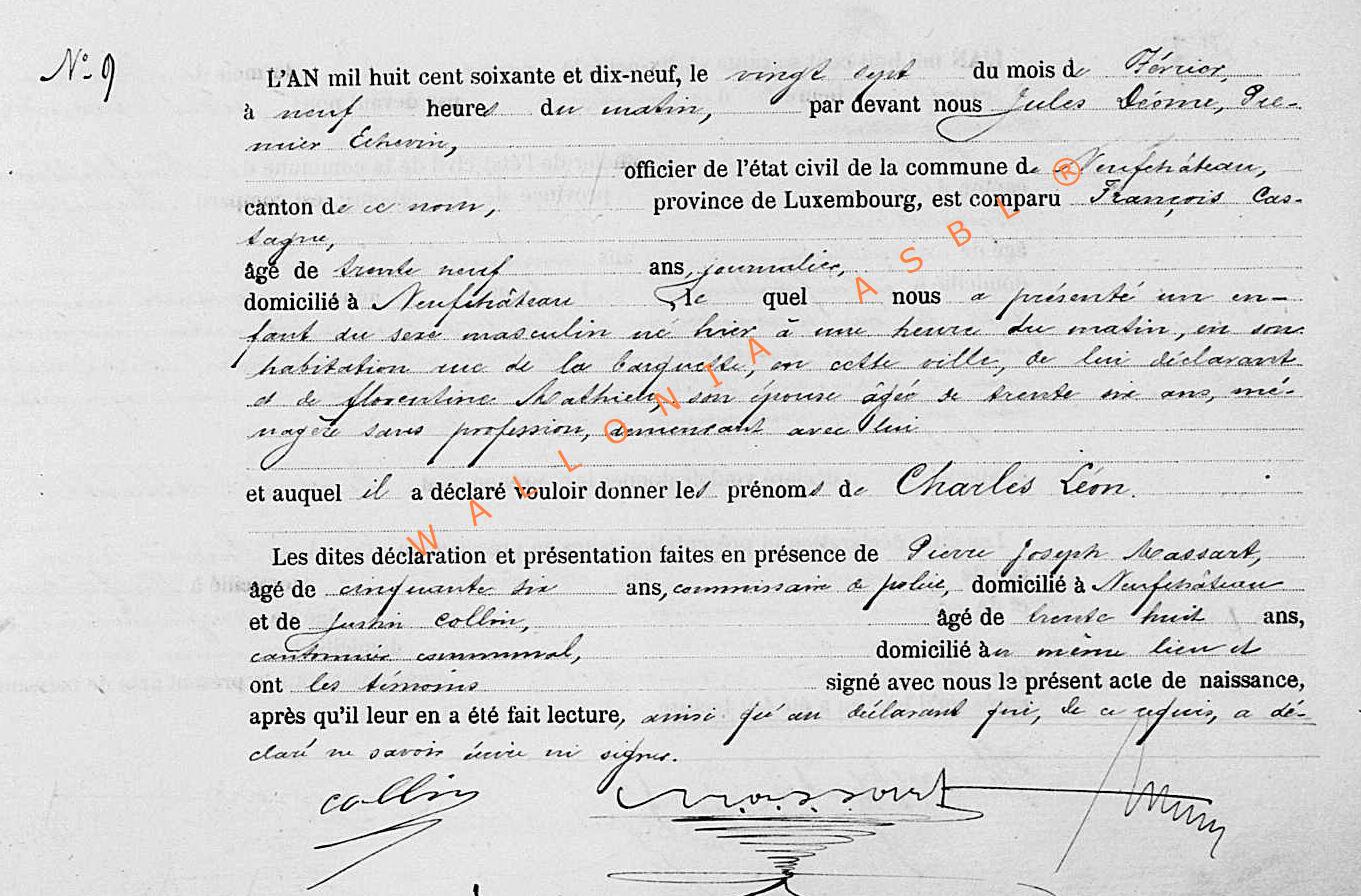 N° 9
L'AN mil huit cent soixante et dix-neuf, le vingt sept du mois de Février,
à neuf heures du matin, par devant nous Jules Déome, Pre-
mier Echevin,
officier de l'état civil de la commune de Neufchâteau,
canton de ce nom, province de Luxembourg, est comparu François Cas-
tagne,
âgé de trente neuf ans, journalier,
domicilié à Neufchâteau le quel nous a présenté un en-
fant du sexe masculin né hier à une heure du matin, en son
habitation rue de la barquette, en cette ville, de lui déclarant
et de florentine Mathieu, son épouse âgée de trente six ans, mé-
nagère sans profession, demeurant avec lui
et auquel il a déclaré vouloir donner les prénoms de Charles Léon.
Les dites déclaration et présentation faites en présence de Pierre Joseph Massart,
âgé de cinquante six ans, commissaire de police, domicilié à Neufchâteau
et de Justin Collin, âgé de trente huit ans,
cantonnier communal, domicilié au même lieu et
ont les témoins signé avec nous le présent acte de naissance,
après qu'il leur en a été fait lecture, ainsi qu'au déclarant qui, de ce requis, a dé-
claré ne savoir écrire ni signer.
Collin Massart
WALLONIA ASBL ®